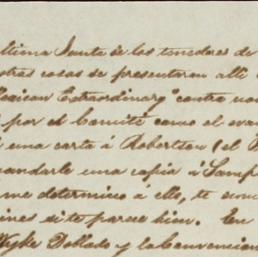 ltima Junta de los tenedores de
otras cosas se presentaron alli
exican Extraordinary" contra
por el Comité como el
una carta á Robertson (el
mandarle una copia á Samp
me determino á ello, te
ines si te parece bien. En
Wyke Doblado y la Convencion